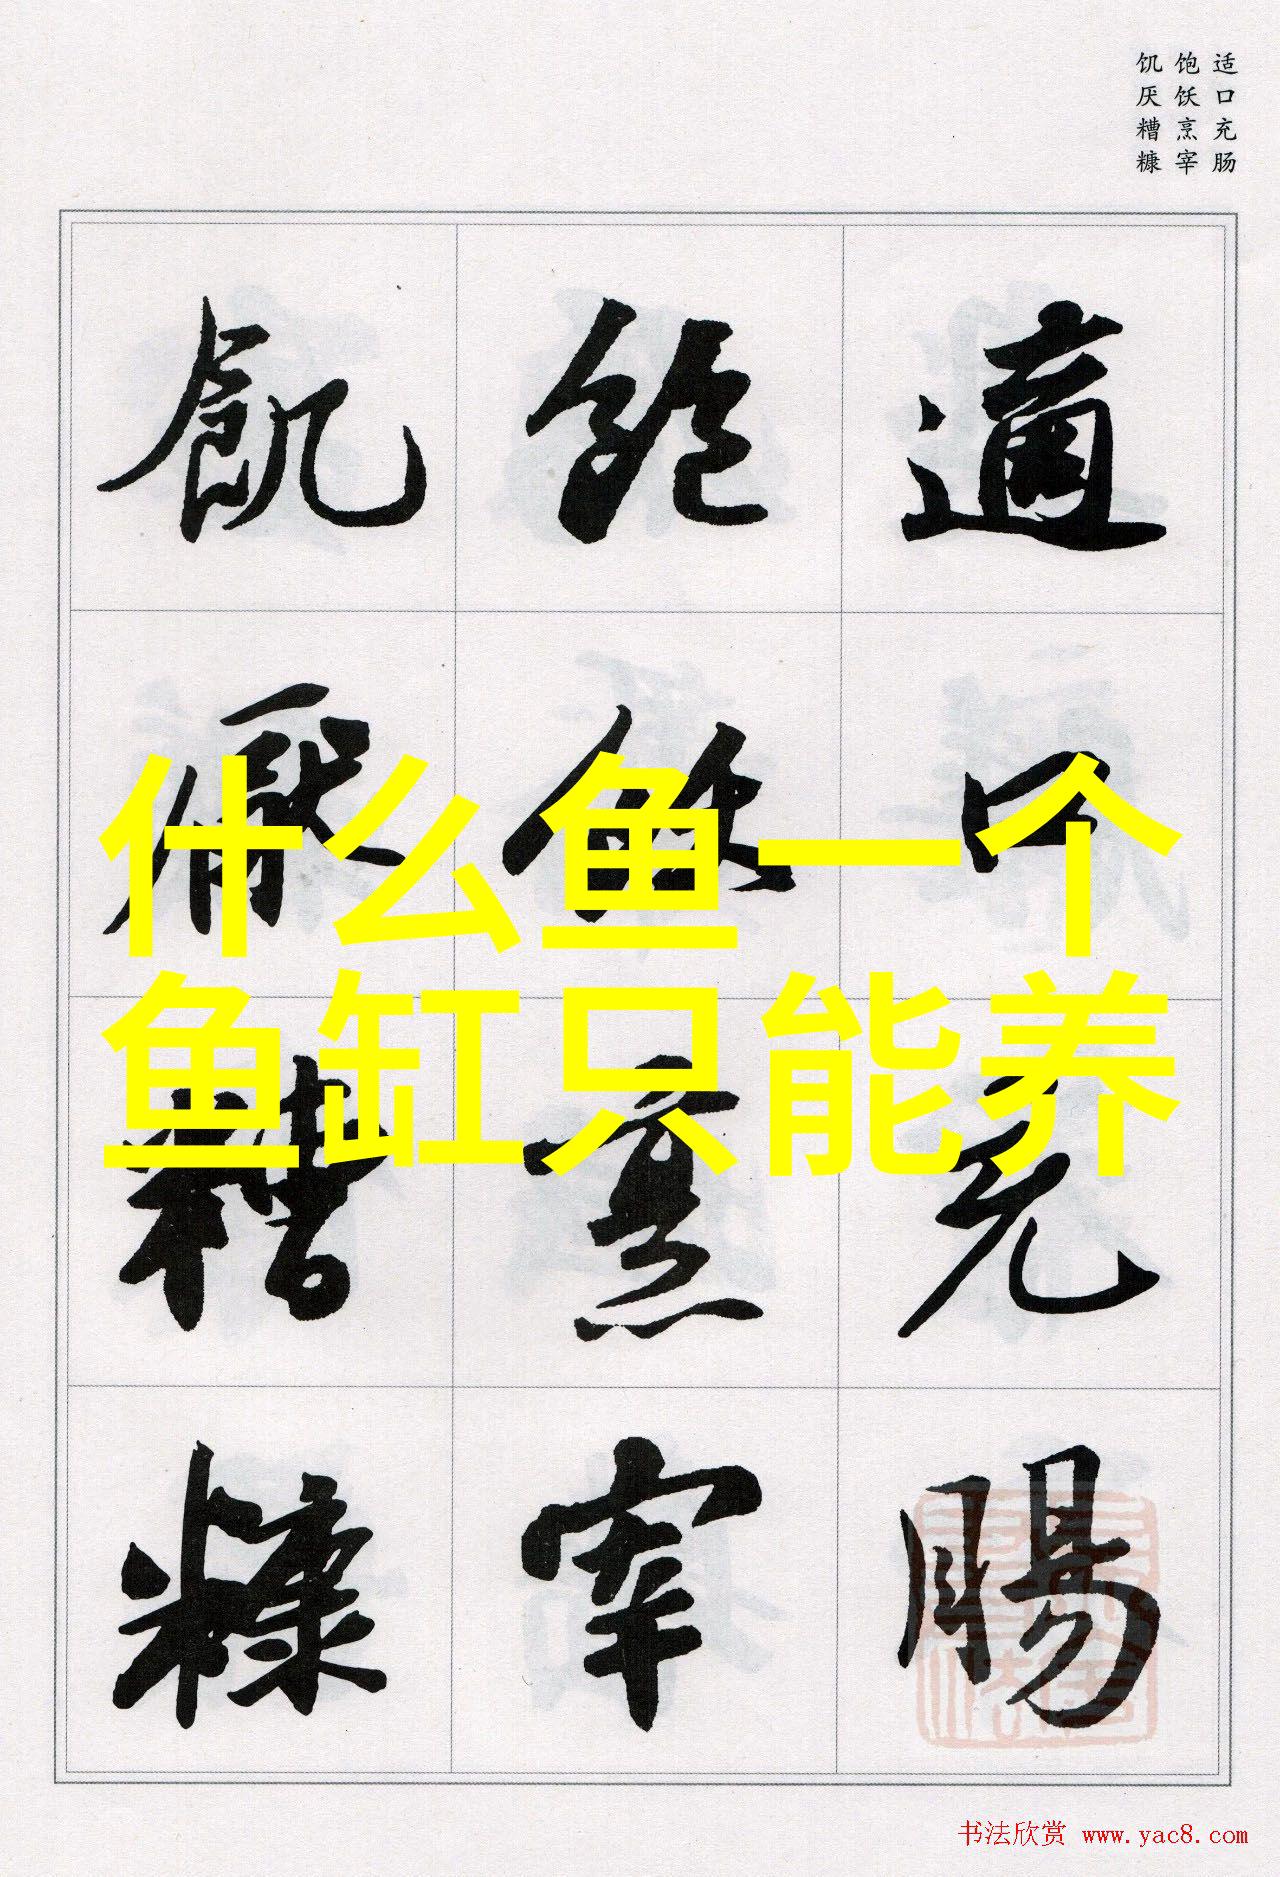 适口充肠
饱饫烹宰
饥厌糟糠
適口充腸
飽飫烹宰
飢厭糟糠
什么鱼一个
鱼缸只能养
书法欣赏 www.yac8.com